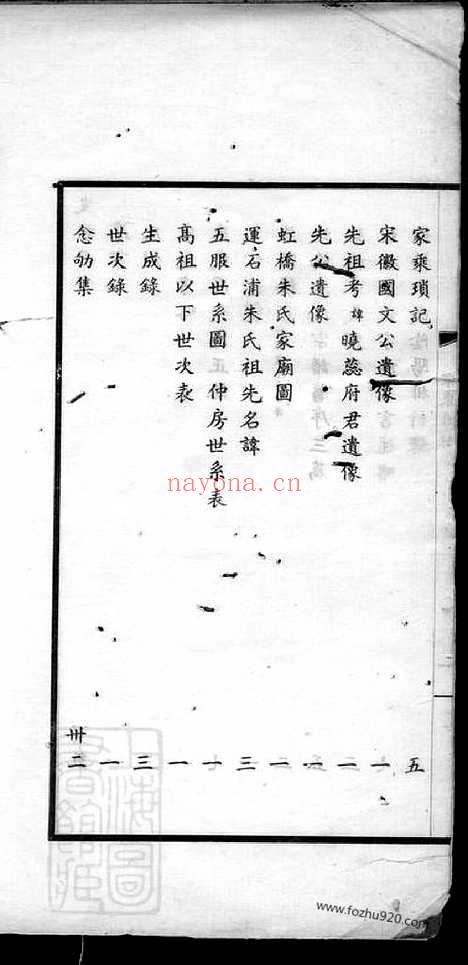 家乘瑣記 五
宋徽國文公遺像 一
先祖考諱曉蕊府君遺像 一
先公遺像 一
虹橋朱氏家廟圖 一
運石浦朱氏祖先名諱 三
五服世系圖 仲房世系表 一
高祖以下世次表 一
生成錄 三
世次錄 一
念劬集 卅二
nayona.cn
www.fozhu920.com